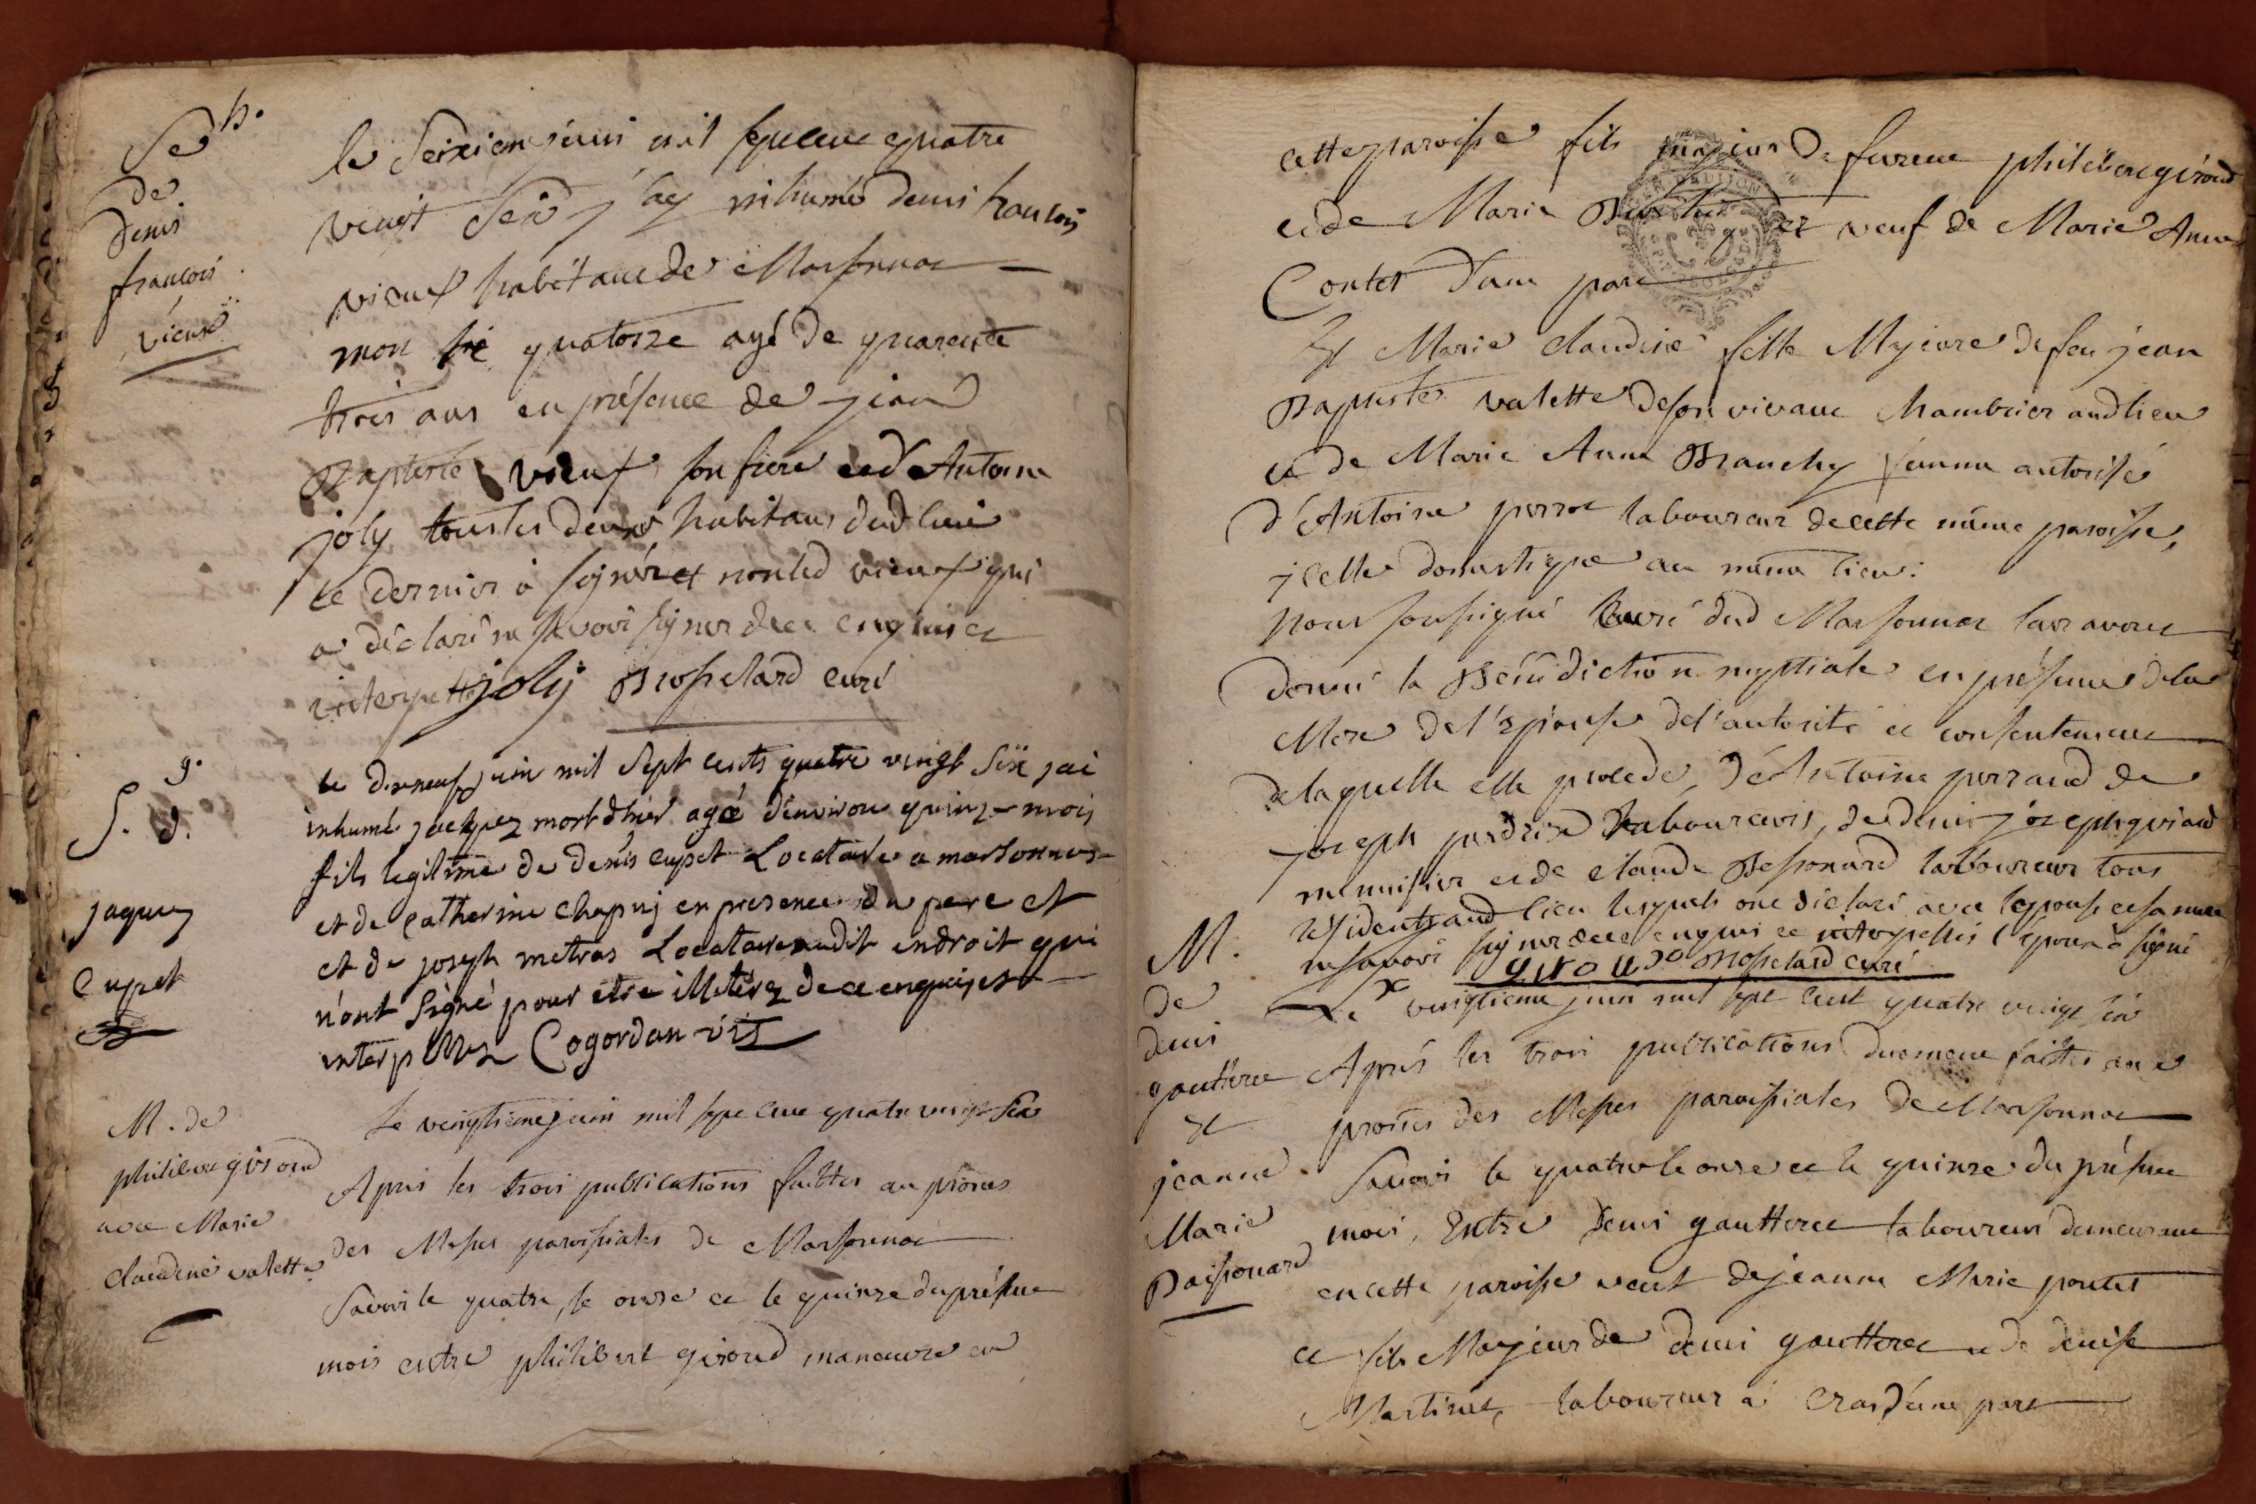 Se h.
de
Denis
francois
vieux
le Seizieme juin mil sept cent quatre
vingt Six j'ay inhumé denis francois
vieux habitant de Marsonnas
mort le quatorze agé de quarente
trois ans en présence de jean
Baptiste vieux son frere et d'Antoine
joly tous les deux habitans dud lieu
le dernier a signé et non led vieux qui
a déclaré ne savoir signer de ce enquis et
interpellé joly Brosselard curé
S. g. d.
jaques
Cupet
le dixneuf juin mil sept cents quatre vingt Six jai
inhumé jacques mort dhier agé denviron quinze mois
fils legitime de denis cupet Locataire a marsonnas
et de catherine chapuy en presence du pere et
et de joseph metras Locataire audit endroit qui
n'ont signé pour etre illeterez de ce enquis et
interpellez Cogordan vic
M. de
philibert giroud
avec Marie
Claudine valette
Le vingtieme juin mil sept cent quatre vingt Six
Apres les trois publications faittes au prônes
des Messes paroissiales de Marsonnas
Savoir le quatre, le onze et le quinze du présent
mois entre philibert giroud manouvre en
cette paroisse fils majeur de furent philibert giroud
et de Marie et veuf de Marie Anne
Contet d'une part
Et Marie Claudine fille Majeure de feu jean
Baptiste valette de son vivant chambrier aud lieu
et de Marie Anne Branchy femme autorisé
d'Antoine perrot laboureur de cette même paroisse,
icelle domestique au même lieu:
Nous soussigné Curé dud Marsonnas leur avons
donné la Bénédiction nuptiale en présence de la
Mere de l'Epouse de l'autorité et consentement
de laquelle elle procede, d'Antoine perraud de
joseph perdrix laboureurs, de denis joseph guiard
menuisier et de claude Bessonard laboureur tous
residents aud lieu lesquels ont déclaré avec l'epouse et sa mere
ne savoir signer de ce enquis et interpellés l'epoux a signé
giroud Brosselard curé
M.
de
denis
gautheret
Et
jeanne
Marie
Baissonard
Le vingtieme juin mil sept cent quatre vingt six
Aprés les trois publications duement faittes aux
prônes des Messes paroissiales de Marsonnas
Savoir le quatre le onze et le quinze du présent
mois, Entre Denis gautheret laboureur demeurant
en cette paroisse veuf de jeanne Marie pontet
et fils Majeur de denis gautheret et de denise
Martinet, laboureur à Cras d'une part